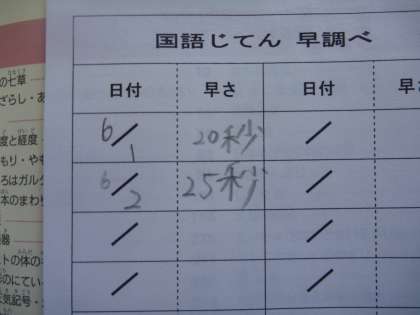 国語じてん 早調べ
日付 早さ 日付 早さ
6/1 20秒 /
6/2 25秒 /
/ /
/ /
の七草
ざらし・あ
度と経度
もり・やも
ろはガルタ
本のまわり
器
ストの体の
形のにてい
気記号・